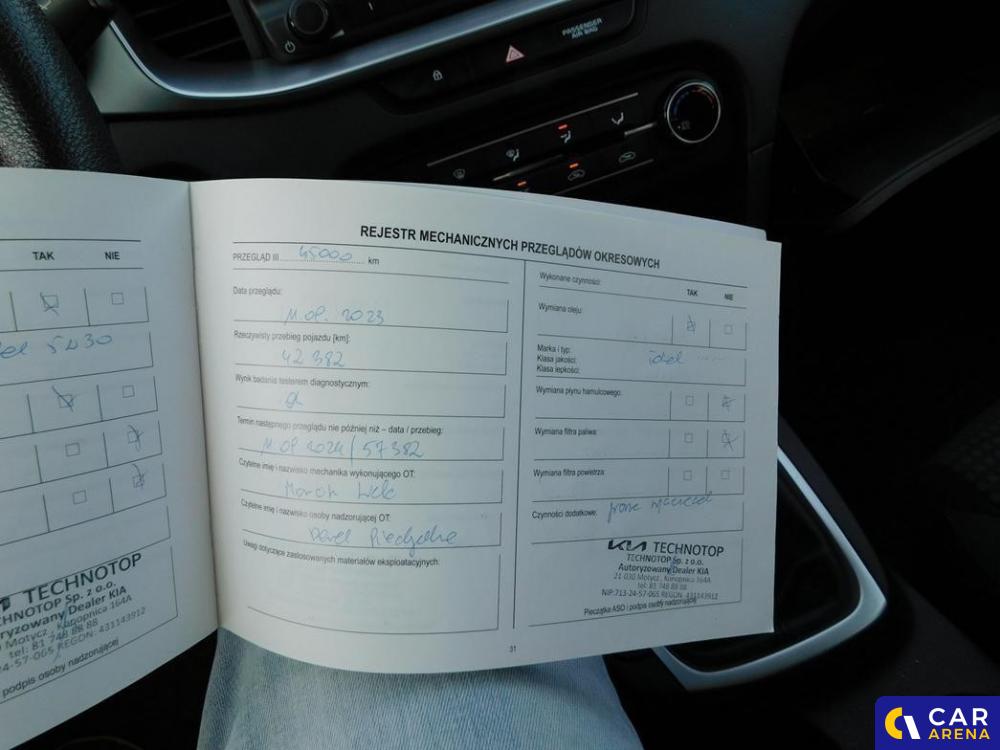 PASSENGER
AIR BAG
TAK NIE
5W30
TECHNOTOP
TECHNOTOP Sp. z o.o.
Autoryzowany Dealer KIA
Motycz, Konopnica 164A
tel: 81 748 88 88
24-57-065 REGON: 431143912
podpis osoby nadzorującej
REJESTR MECHANICZNYCH PRZEGLĄDÓW OKRESOWYCH
PRZEGLĄD III 45000 km
Data przeglądu:
2023
Rzeczywisty przebieg pojazdu [km]:
42 382
Wynik badania testerem diagnostycznym:
Termin następnego przeglądu nie później niż – data / przebieg:
2024 / 57382
Czytelne imię i nazwisko mechanika wykonującego OT:
Czytelne imię i nazwisko osoby nadzorującej OT:
Uwagi dotyczące zastosowanych materiałów eksploatacyjnych:
Wykonane czynności:
TAK NIE
Wymiana oleju:
Marka i typ:
Klasa jakości:
Klasa lepkości:
Wymiana płynu hamulcowego:
Wymiana filtra paliwa:
Wymiana filtra powietrza:
Czynności dodatkowe:
KIA TECHNOTOP
TECHNOTOP Sp. z o.o.
Autoryzowany Dealer KIA
21-030 Motycz, Konopnica 164A
tel: 81 748 88 88
NIP:713-24-57-065 REGON: 431143912
Pieczątka ASO i podpis osoby nadzorującej
31
CAR
ARENA